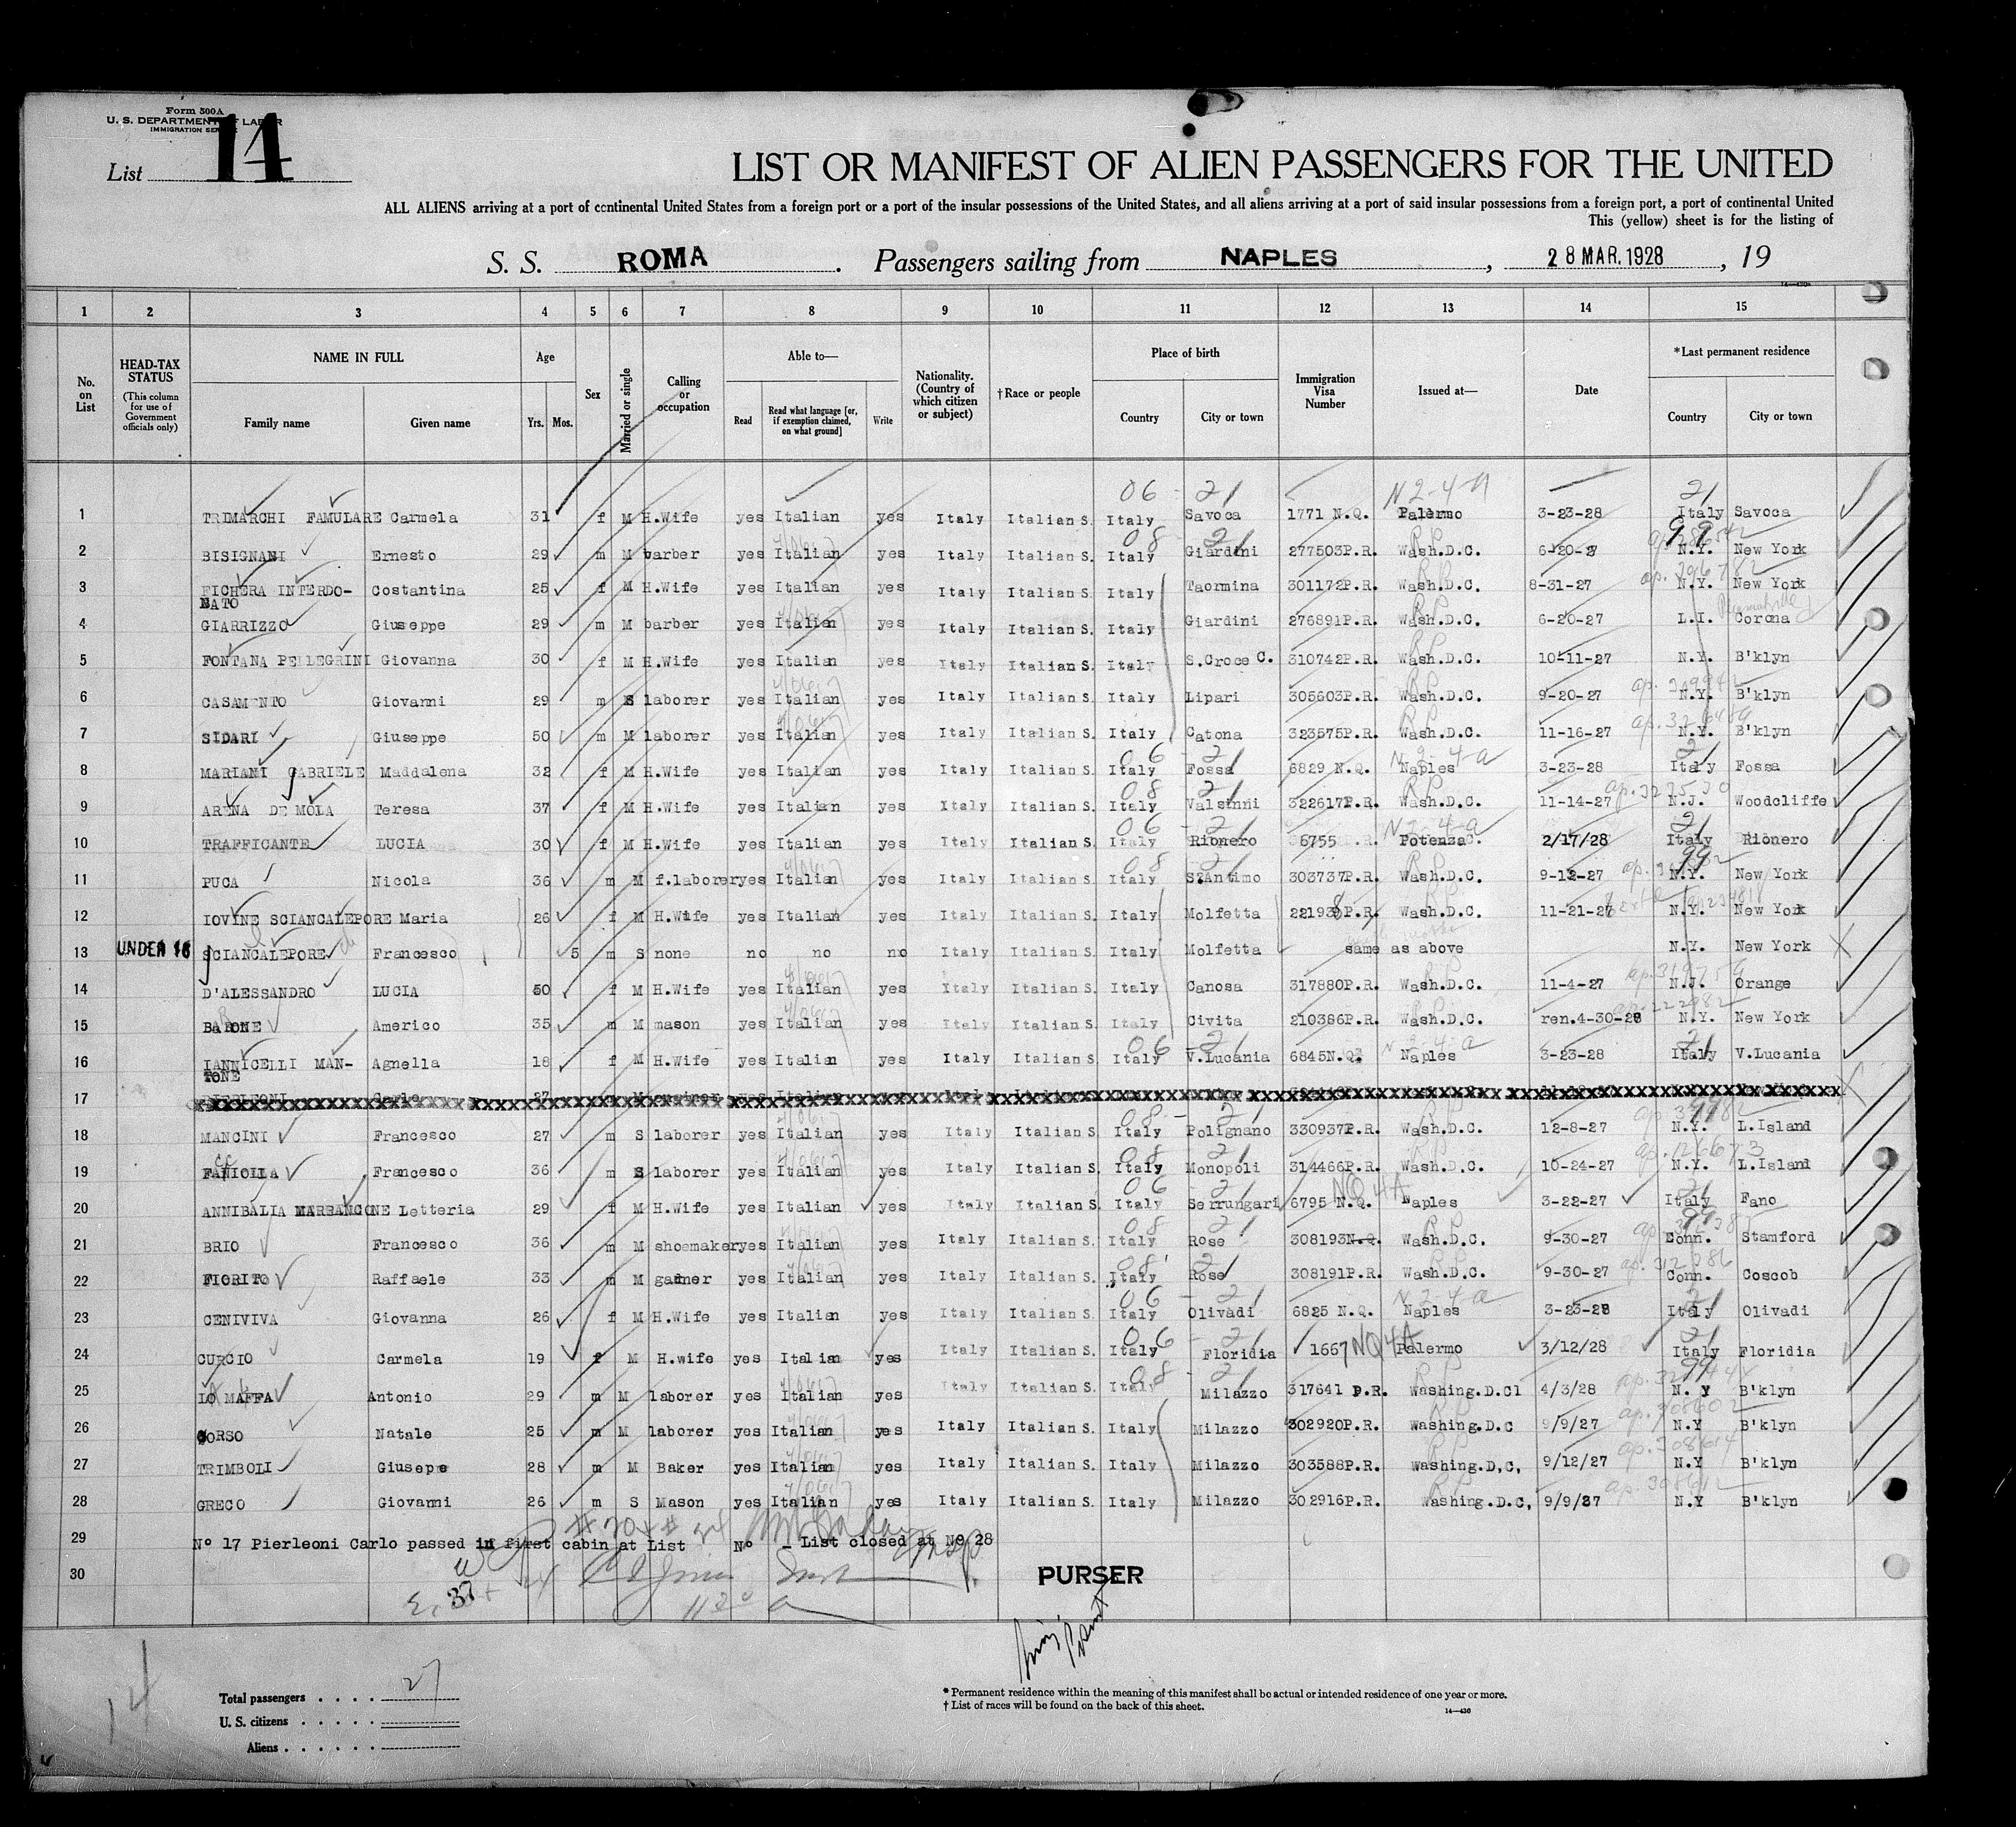 Form 500A
U. S. DEPARTMENT OF LABOR
IMMIGRATION SERVICE
List 14
LIST OR MANIFEST OF ALIEN PASSENGERS FOR THE UNITED
ALL ALIENS arriving at a port of continental United States from a foreign port or a port of the insular possessions of the United States, and all aliens arriving at a port of said insular possessions from a foreign port, a port of continental United
This (yellow) sheet is for the listing of
S. S. ROMA. Passengers sailing from NAPLES, 28 MAR. 1928, 19
1 2 3 4 5 6 7 8 9 10 11 12 13 14 15
No. on List
HEAD-TAX STATUS (This column for use of Government officials only)
NAME IN FULL Family name Given name
Age Yrs. Mos.
Sex
Married or single
Calling or occupation
Able to— Read Read what language [or, if exemption claimed, on what ground] Write
Nationality. (Country of which citizen or subject)
† Race or people
Place of birth Country City or town
Immigration Visa Number
Issued at—
Date
* Last permanent residence Country City or town
06 - 21 N 2-4-A 21
1 TRIMARCHI FAMULARE Carmela 31 f M H.Wife yes Italian yes Italy Italian S. Italy Savoca 1771 N.Q. Palermo 3-23-28 Italy Savoca
2 BISIGNANI Ernesto 29 m M barber yes Italian yes Italy Italian S. Italy Giardini 277503P.R. Wash.D.C. N.Y. New York
3 FICHERA INTERDO- Costantina 25 f M H.Wife yes Italian yes Italy Italian S. Italy Taormina 301172P.R. Wash.D.C. 8-31-27 N.Y. New York
NATO
4 GIARRIZZO Giuseppe 29 m M barber yes Italian yes Italy Italian S. Italy Giardini 276891P.R. Wash.D.C. 6-20-27 L.I. Corona
5 FONTANA PELLEGRINI Giovanna 30 f M H.Wife yes Italian yes Italy Italian S. Italy S.Croce C. 310742P.R. Wash.D.C. 10-11-27 N.Y. B'klyn
6 CASAMENTO Giovanni 29 m S laborer yes Italian yes Italy Italian S. Italy Lipari 305603P.R. Wash.D.C. 9-20-27 N.Y. B'klyn
7 SIDARI Giuseppe 50 m M laborer yes Italian yes Italy Italian S. Italy Catona 323575P.R. Wash.D.C. 11-16-27 N.Y. B'klyn
8 MARIANI GABRIELE Maddalena 32 f M H.Wife yes Italian yes Italy Italian S. Italy Fossa 6829 N.Q. Naples 3-23-28 Italy Fossa
9 ARENA DE MOLA Teresa 37 f M H.Wife yes Italian yes Italy Italian S. Italy Valsinni 322617P.R. Wash.D.C. 11-14-27 N.J. Woodcliffe
10 TRAFFICANTE LUCIA 30 f M H.Wife yes Italian yes Italy Italian S. Italy Rionero 6755 Potenza 2/17/28 Italy Rionero
11 PUCA Nicola 36 m M f.laborer yes Italian yes Italy Italian S. Italy S.Antimo 303737P.R. Wash.D.C. 9-12-27 N.Y. New York
12 IOVINE SCIANCALEPORE Maria 26 f M H.Wife yes Italian yes Italy Italian S. Italy Molfetta 221938P.R. Wash.D.C. 11-21-27 N.Y. New York
13 UNDER 16 SCIANCALEPORE Francesco 5 m S none no no no Italy Italian S. Italy Molfetta same as above N.Y. New York
14 D'ALESSANDRO LUCIA 50 f M H.Wife yes Italian yes Italy Italian S. Italy Canosa 317880P.R. Wash.D.C. 11-4-27 N.J. Orange
15 BARONE Americo 35 m M mason yes Italian yes Italy Italian S. Italy Civita 210386P.R. Wash.D.C. ren.4-30-28 N.Y. New York
16 IANNICELLI MAN- Agnella 18 f M H.Wife yes Italian yes Italy Italian S. Italy V.Lucania 6845N.Q. Naples 3-23-28 Italy V.Lucania
TONE
17
18 MANCINI Francesco 27 m S laborer yes Italian yes Italy Italian S. Italy Polignano 330937P.R. Wash.D.C. 12-8-27 N.Y. L.Island
19 Francesco 36 m S laborer yes Italian yes Italy Italian S. Italy Monopoli 314466P.R. Wash.D.C. 10-24-27 N.Y. L.Island
20 ANNIBALIA MARRANCONE Letteria 29 f M H.Wife yes Italian yes Italy Italian S. Italy Serrungari 6795 N.Q. Naples 3-22-27 Italy Fano
21 BRIO Francesco 36 m M shoemaker yes Italian yes Italy Italian S. Italy Rose 308193N.Q. Wash.D.C. 9-30-27 Conn. Stamford
22 FIORITO Raffaele 33 m M gadner yes Italian yes Italy Italian S. Italy Rose 308191P.R. Wash.D.C. 9-30-27 Conn. Coscob
23 CENIVIVA Giovanna 26 f M H.Wife yes Italian yes Italy Italian S. Italy Olivadi 6825 N.Q. Naples 3-23-28 Italy Olivadi
24 CURCIO Carmela 19 f M H.wife yes Italian yes Italy Italian S. Italy Floridia 1667 NQ 4A Palermo 3/12/28 Italy Floridia
25 LO MAFFA Antonio 29 m M laborer yes Italian yes Italy Italian S. Italy Milazzo 317641 P.R. Washing.D.Cl 4/3/28 N. Y B'klyn
26 CORSO Natale 25 m M laborer yes Italian yes Italy Italian S. Italy Milazzo 302920P.R. Washing.D.C 9/9/27 N.Y B'klyn
27 TRIMBOLI Giusepe 28 m M Baker yes Italian yes Italy Italian S. Italy Milazzo 303588P.R. Washing.D,C, 9/12/27 N.Y B'klyn
28 GRECO Giovanni 26 m S Mason yes Italian yes Italy Italian S. Italy Milazzo 302916P.R. Washing.D.C, 9/9/27 N.Y B'klyn
29 Nº 17 Pierleoni Carlo passed in first cabin at List Nº - List closed at Nº 28
30 PURSER
37
14
Total passengers . . . . 27
U. S. citizens . . . . .
Aliens . . . . . .
* Permanent residence within the meaning of this manifest shall be actual or intended residence of one year or more.
† List of races will be found on the back of this sheet.
14—430